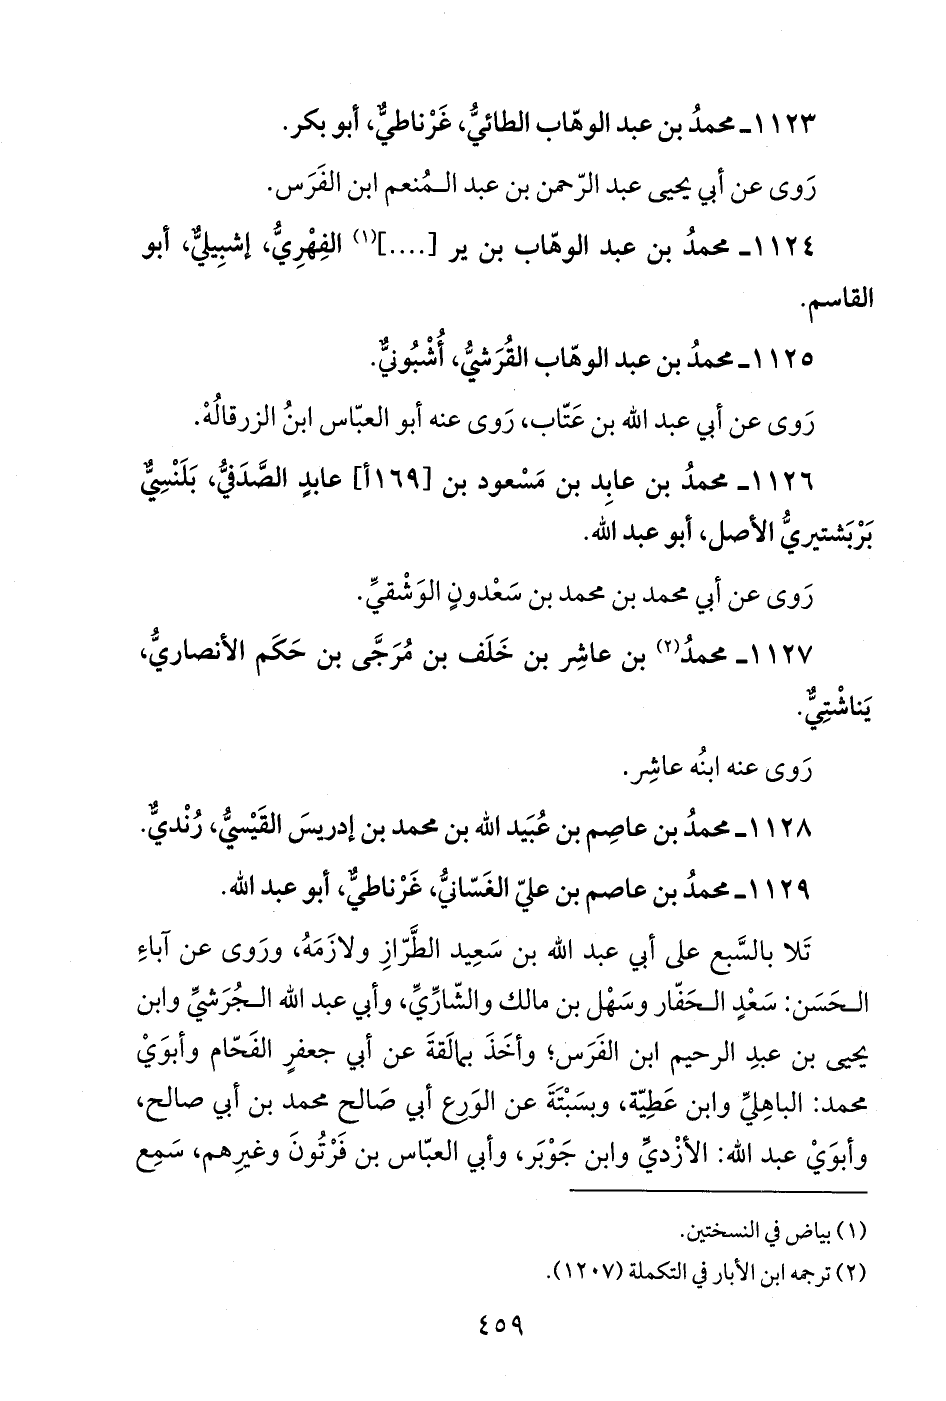 ١١٢٣ـ محمدُ بن عبد الوهّاب الطائيُّ، غَرْناطيٌّ، أبو بكر.
رَوى عن أبي يحيى عبد الرّحمن بن عبد المُنعم ابن الفَرَس.
١١٢٤ـ محمدُ بن عبد الوهّاب بن ير [....](١) الفِهْرِيُّ، إشبِيليٌّ، أبو
القاسم.
١١٢٥ـ محمدُ بن عبد الوهّاب القُرَشيُّ، أُشْبُونيٌّ.
رَوى عن أبي عبد الله بن عَتّاب، رَوى عنه أبو العبّاس ابنُ الزرقالُهْ.
١١٢٦ـ محمدُ بن عابِد بن مَسْعود بن [١٦٩أ] عابدٍ الصَّدَفيُّ، بَلَنْسِيٌّ
بَرْبَشتيريُّ الأصل، أبو عبد الله.
رَوى عن أبي محمد بن محمد بن سَعْدونٍ الوَشْقيِّ.
١١٢٧ـ محمدُ(٢) بن عاشِر بن خَلَف بن مُرَجَّى بن حَكَم الأنصاريُّ،
يَناشْتِيٌّ.
رَوى عنه ابنُه عاشِر.
١١٢٨ـ محمدُ بن عاصِم بن عُبَيد الله بن محمد بن إدريسَ القَيْسيُّ، رُنْديٌّ.
١١٢٩ـ محمدُ بن عاصم بن عليّ الغَسّانيُّ، غَرْناطيٌّ، أبو عبد الله.
تَلا بالسَّبع على أبي عبد الله بن سَعِيد الطَّرّازِ ولازَمَهُ، ورَوى عن آباءِ
الحَسَن: سَعْدٍ الحَفّار وسَهْل بن مالك والشّارِّيِّ، وأبي عبد الله الجُرَشيِّ وابن
يحيى بن عبدِ الرحيم ابن الفَرَس؛ وأخَذَ بمالَقةَ عن أبي جعفرٍ الفَحّام وأبوَيْ
محمد: الباهِليِّ وابن عَطِيّة، وبسَبْتَةَ عن الوَرِع أبي صَالح محمد بن أبي صالح،
وأبوَيْ عبد الله: الأزْديِّ وابن جَوْبَر، وأبي العبّاس بن فَرْتُونَ وغيرِهم، سَمِع
(١) بياض في النسختين.
(٢) ترجمه ابن الأبار في التكملة (١٢٠٧).
٤٥٩